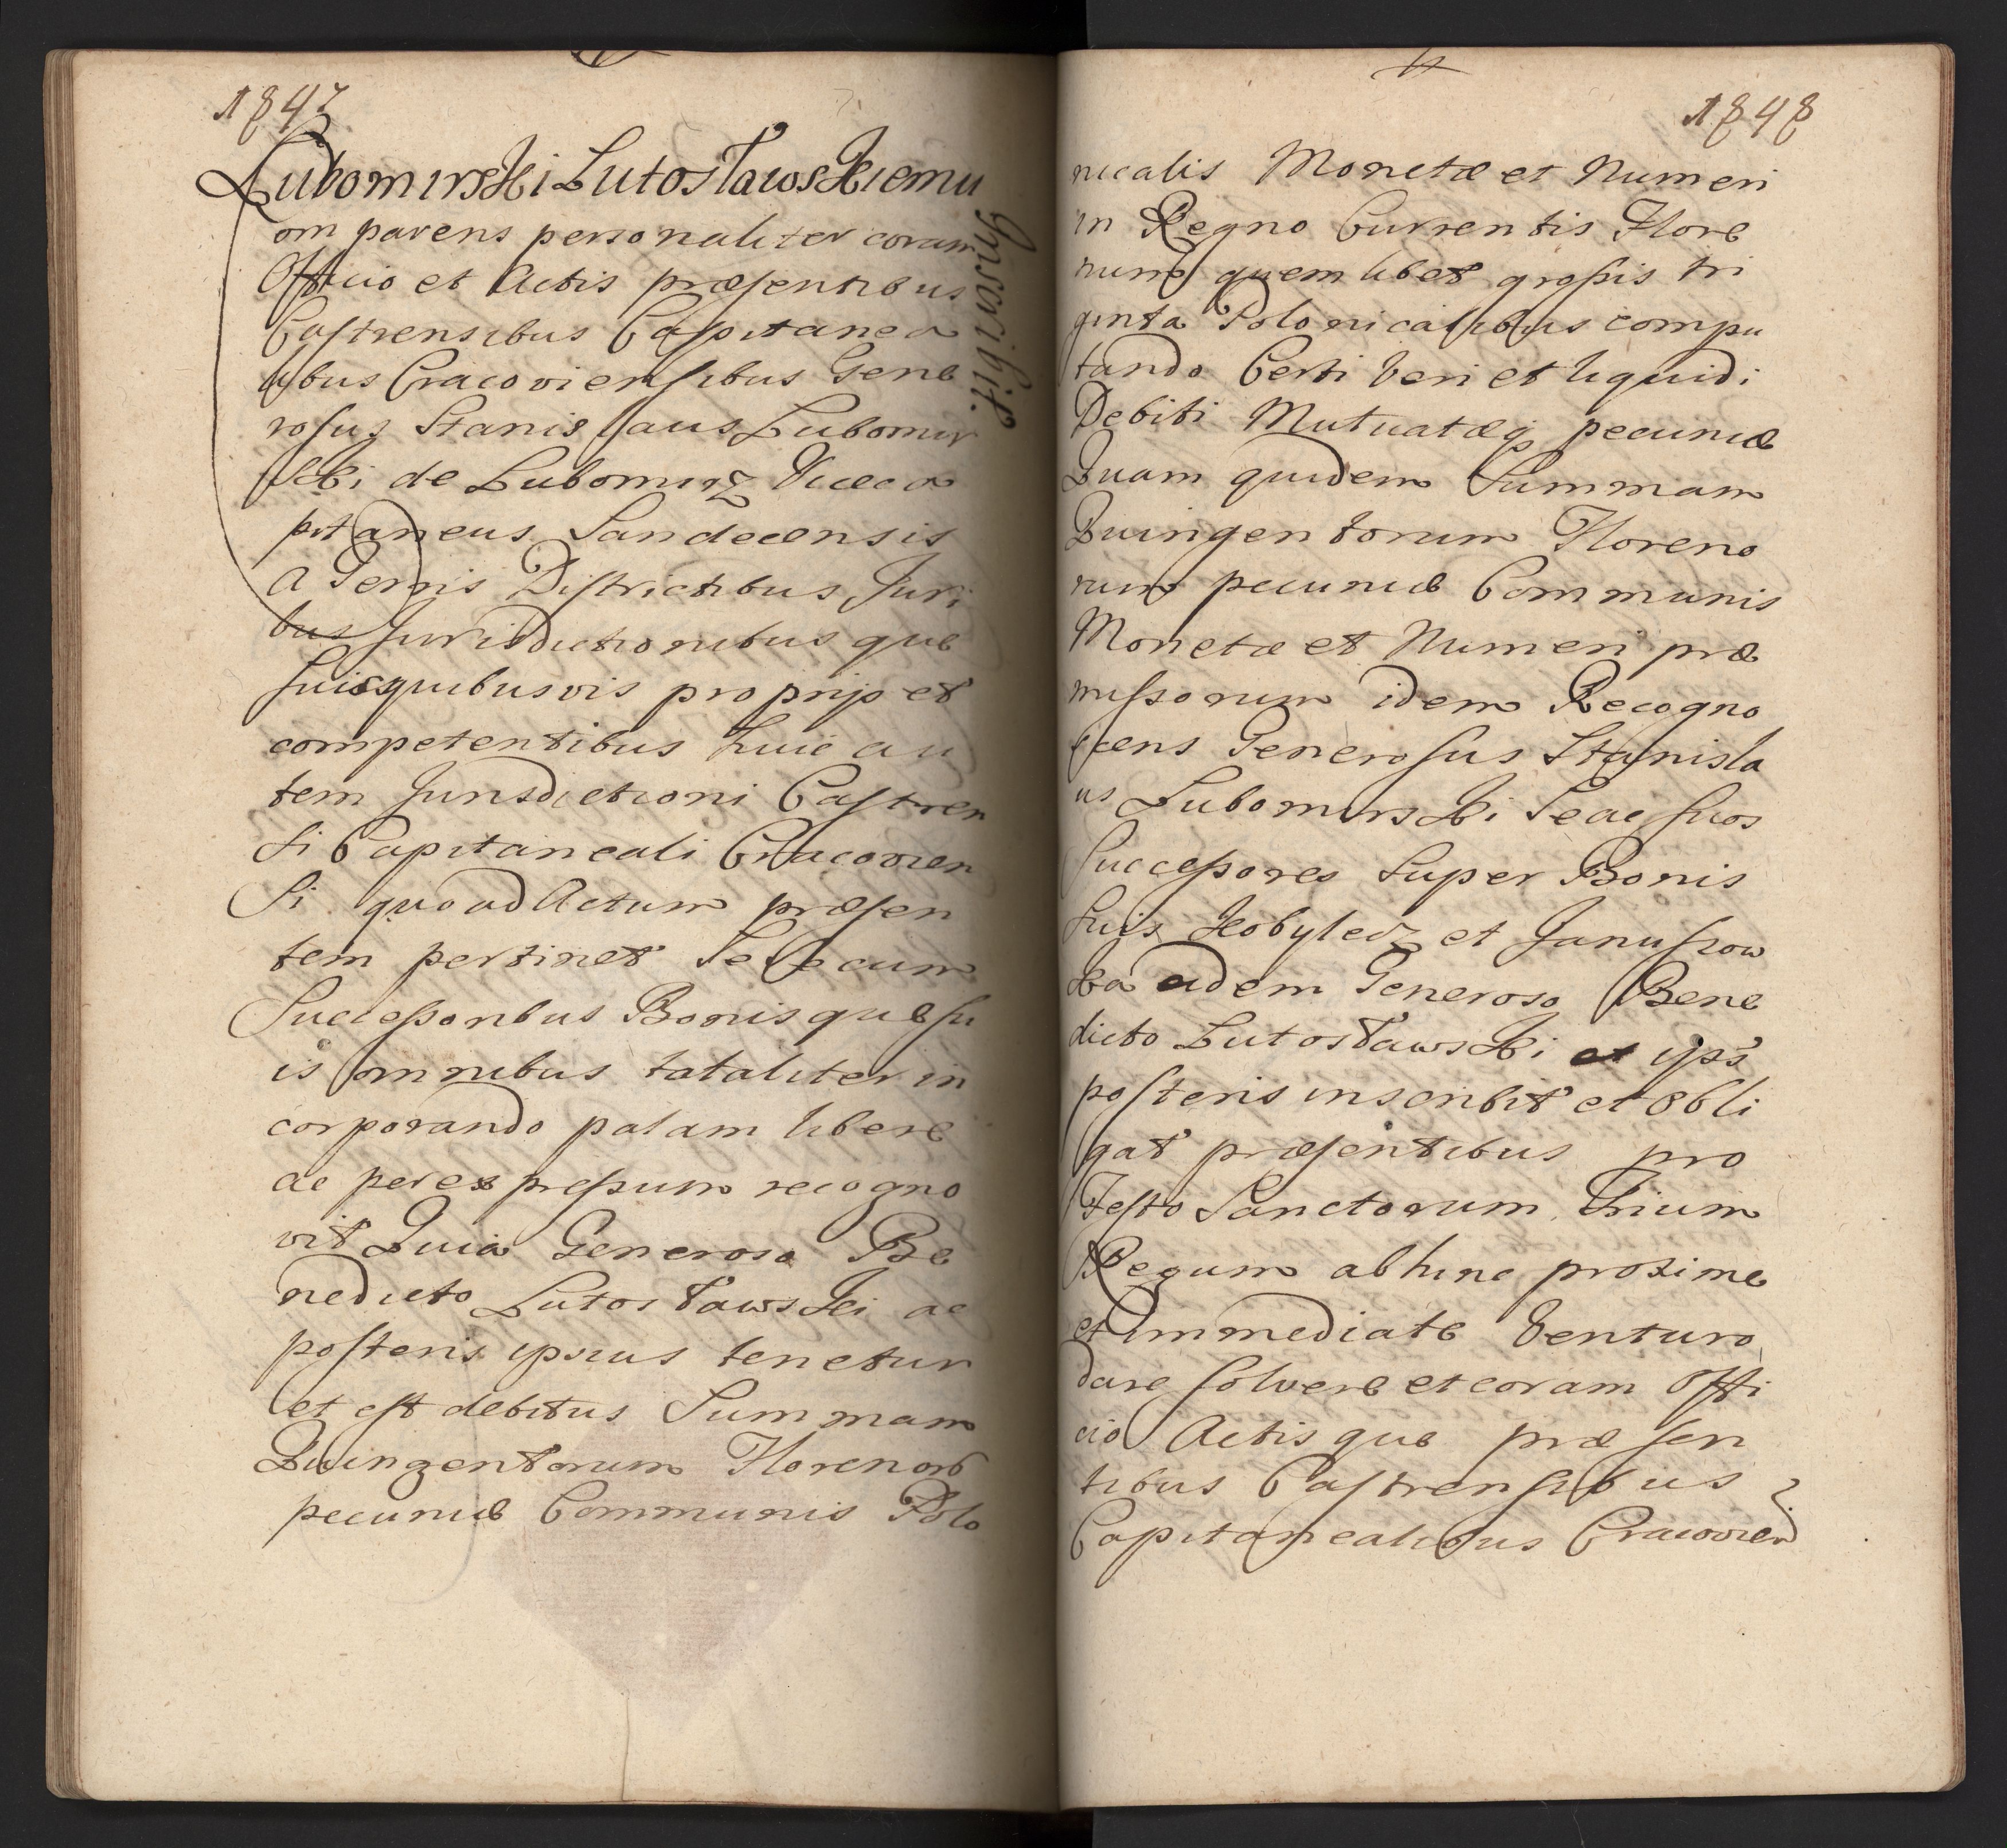 1847
Lubomirski Lutosławskiemu
Inscribit.
omparens personaliter coram
Officio et Actis præsentibus
Castrensibus Capitanea
libus Cracoviensibus Gene
rosus Stanislaus Lubomir
ski de Lubomirz Viceca
pitaneus Sandecensis
a Terris Districtibus Juri
bus Jurisdictionibus que
suis quibusvis proprijs et
competentibus huic au
tem Jurisdictioni Castren
si Capitaneali Cracovien
si quo ad Actum præsen
tem pertinet Se cum
Successoribus Bonis que su
is omnibus totaliter in
corporando palam libere
ac per expressum recogno
vit Quia Generoso Be
nedicto Lutosławski ac
posteris ipsius tenetur
et est debitus Summam
Quingentorum Florenor
pecuniæ Communis Polo
1848
nicalis Monetæ et Numeri
in Regno Currentis Flore
num quemlibet grossis tri
ginta Polonicalibus compu
tando Certi Veri et liquidi
Debiti Mutuatæq pecuniæ
Quam quidem Summam
Quingentorum Floreno
rum pecuniæ Communis
Monetæ et Numeri præ
missorum idem Recogno
scens Generosus Stanisla
us Lubomirski Se ac suos
Successores Super Bonis
suis Kobylec et Janussow
ka eidem Generoso Bene
dicto Lutosławski et ips
posteris inscribit et obli
gat præsentibus pro
Festo Sanctorum Trium
Regum abhinc proxime
et immediate Venturo
dare solvere et coram Offi
cio Actis que præsen
tibus Castrensibus
Capitanealibus Cracovien